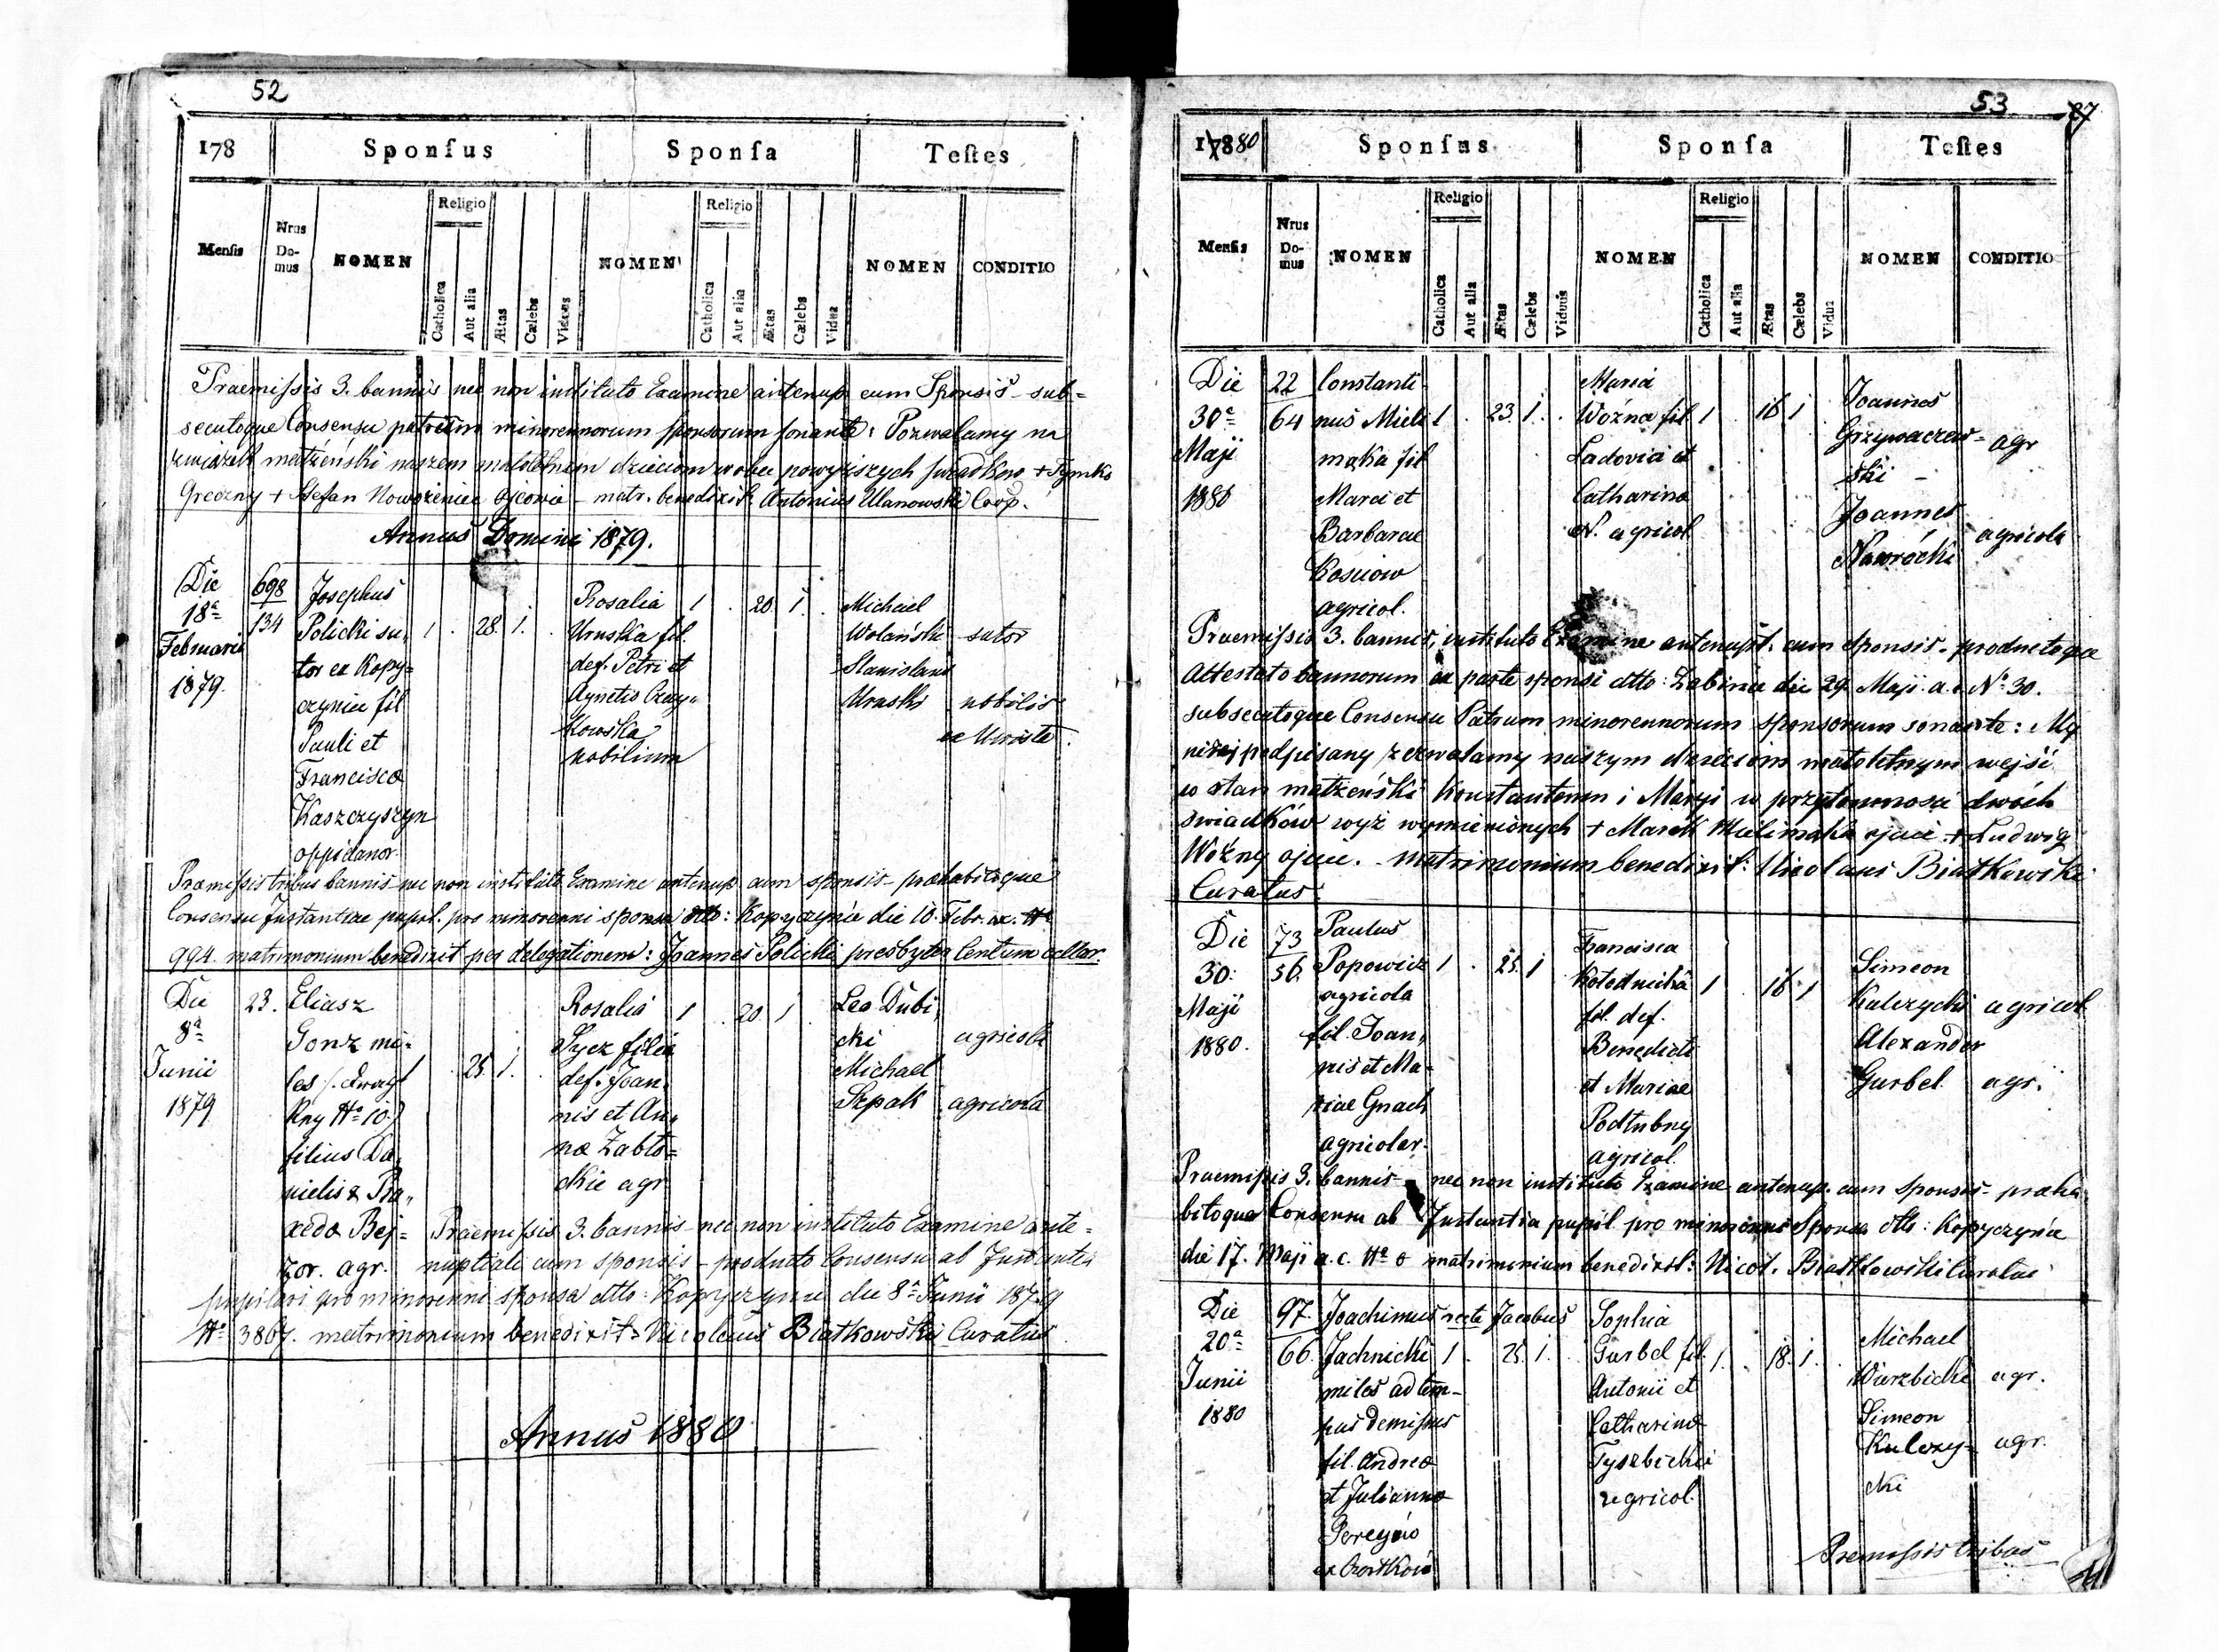 52
178 Sponſus Sponſa Teſtes
Menſis Nrus Do-mus NOMEN Religio Catholica Aut alia Ætas Cælebs Viduus NOMEN Religio Catholica Aut alia Ætas Cælebs Vidua NOMEN CONDITIO
Praemissis 3. bannis nec non instituto Examine antenup cum Sponsis - sub=
secutoque Consensu patrum minorennorum sponsorum sonante: Pozwalamy na
związek małżeński naszem małoletniem dzieciom wobec powyższych świadków + Tymko
Greczny + Stefan Nowożeniec ojcowie - matr. benedixit: Antonius Ulanowski Coop.
Annus Domini 1879.
Die 698 Josephus Rosalia 1 . 20. 1. Michael
18ª 134 Policki su, 1 . 28. 1. . Uruska fil. Wolański sutor
Februarii tor ex Kopy= def. Petri et Stanislaus
1879. czyniec fil Agnetis Czay= Uruski nobilis
Pauli et kowska ex Uriste.
Francisca nobilium
Kaszczyszyn
oppidanor.
Præmissis tribus bannis nec non instituto Examine antenup cum sponsis - præhabitoque
Consensu Instantiae pupil. pro minorenni sponsa dtto: Kopyczyńce die 10. Febr. a.c. Nº
994. matrimonium benedixit per delegationem: Joannes Policki presbyter Centum cellar.
Die 23. Eliasz Rosalia 1 . 20. 1 Leo Dubi,
8ª Gonz mi= Syez filia cki agricola
Junii les 25 1. def. Joan, Michael
1879 kny Nº 10.) nis et An, Szpak agricola
filius Da, næ Zabło=
nielis & Pra, ckie agr
xedæ Bej= Praemissis 3. bannis nec non instituto Examine ante=
zor. agr. nuptiali cum sponsis - producto Consensu ab Instantia
pupilari pro minorenni sponsa dtto: Kopyczyńce die 8ª Junii 1879
Nº 3867. matrimonium benedixit: Nicolaus Białkowski Curatus
Annus 1880
53 87
17880 Sponſus Sponſa Teſtes
Menſis Nrus Do-mus NOMEN Religio Catholica Aut alia Ætas Cælebs Viduus NOMEN Religio Catholica Aut alia Ætas Cælebs Vidua NOMEN CONDITIO
Die 22 Constanti Maria Joannes
30ª 64 nus Mieli 1 . 23. 1. . Woźna fil 1 . 16 1 Grzywaczew= agr
Maji maka fil Ladovici et ski -
1880 Marci et Catharina Joannes
Barbarae N. agricol Nawrocki agricola
Kosciow
agricol.
Praemissis 3. bannis, instituto Examine antenupt. cum sponsis - productoque
Attestato bannorum ex parte sponsi dtto: Zabince die 29. Maji a.c. Nº 30.
subsecutoque Consensu Patrum minorennorum sponsorum sonante: My
niżej podpisany zezwalamy naszym dzieciom małoletnym wejść
w stan małżeński Konstantemu i Maryi w przytomności dwóch
świadków wyż wymienionych + Marek Mielimaka ojciec + Ludwig
Woźny ojciec. - matrimonium benedixit: Nicolaus Białkowski
Curatus.
Die 73 Paulus Francisca Simeon
30: 56. Popowicz 1 . 25. 1 Kołodnicka 1 . 16 1 Kulczycki agricol
Maji agricola fil. def. Alexander
1880. fil. Joan, Benedicti Gurbel agr.
nis et Ma= et Mariae
riae Gnach Podłubny
agricolar. agricol.
Praemissis 3. bannis - nec non instituto Examine antenup. cum Sponsis - præha
bitoque Consensu ab Instantia pupil. pro minorenni Sponsa dtto: Kopyczyńce
die 17. Maji a.c. Nº 0 matrimonium benedixit: Nicol. Białkowski Curatus
Die 97. Joachimus recte Jacobus Sophia Michael
20ª 66. Jachnicki 1 . 25. 1. . Gurbel fil. 1. . 18. 1. . Wierzbicki agr.
Junii miles ad tem- Antonii et Simeon
1880 pus demissus Catharinæ Kulczy= agr.
fil. Andreæ Tyszbickii cki
et Julianna agricol.
Peregino
ex Czortków
Premissis tribus